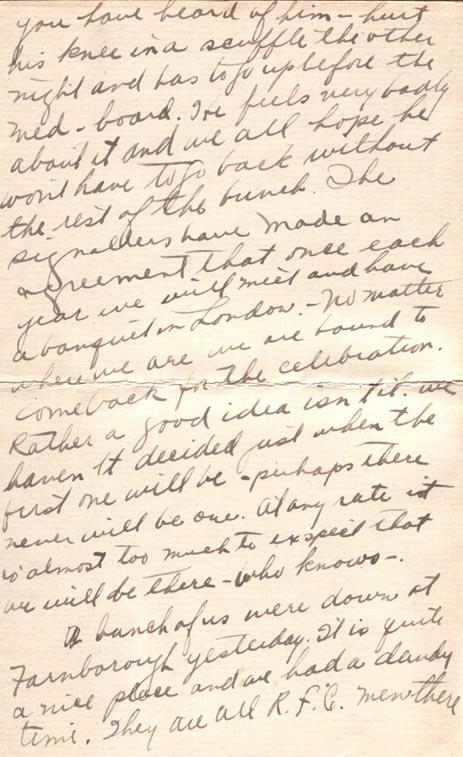 you have heard of him - hurt
his knee in a scuffle the other
night and has to go up before the
med - board. He feels very badly
about it and we all hope he
wont have to go back without
the rest of the bunch. The
signallers have made an
agreement that once each
year we will meet and have
a banquet in London. - No matter
where we are we are bound to
come back for the celebration.
Rather a good idea isn't it. we
haven't decided just when the
first one will be - perhaps there
never will be one. At any rate it
is almost too much to expect that
we will be there - who knows -.
A bunch of us were down at
Farnborough yesterday. It is quite
a nice place and we had a dandy
time. They are all R.F.C. men there